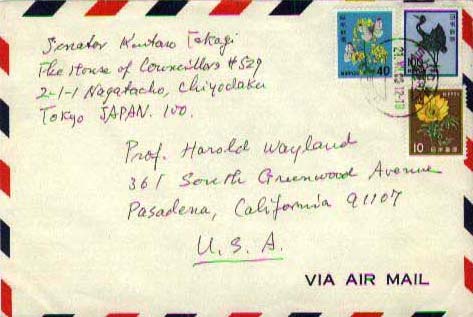 Senator Kentaro Takagi
The House of Councillors #529
2-1-1 Nagatacho, Chiyodaku
Tokyo JAPAN. 100.
Prof. Harold Wayland
361 South Greenwood Avenue
Pasadena, California 91107
U. S. A.
VIA AIR MAIL
NIPPON 40
10 日本郵便